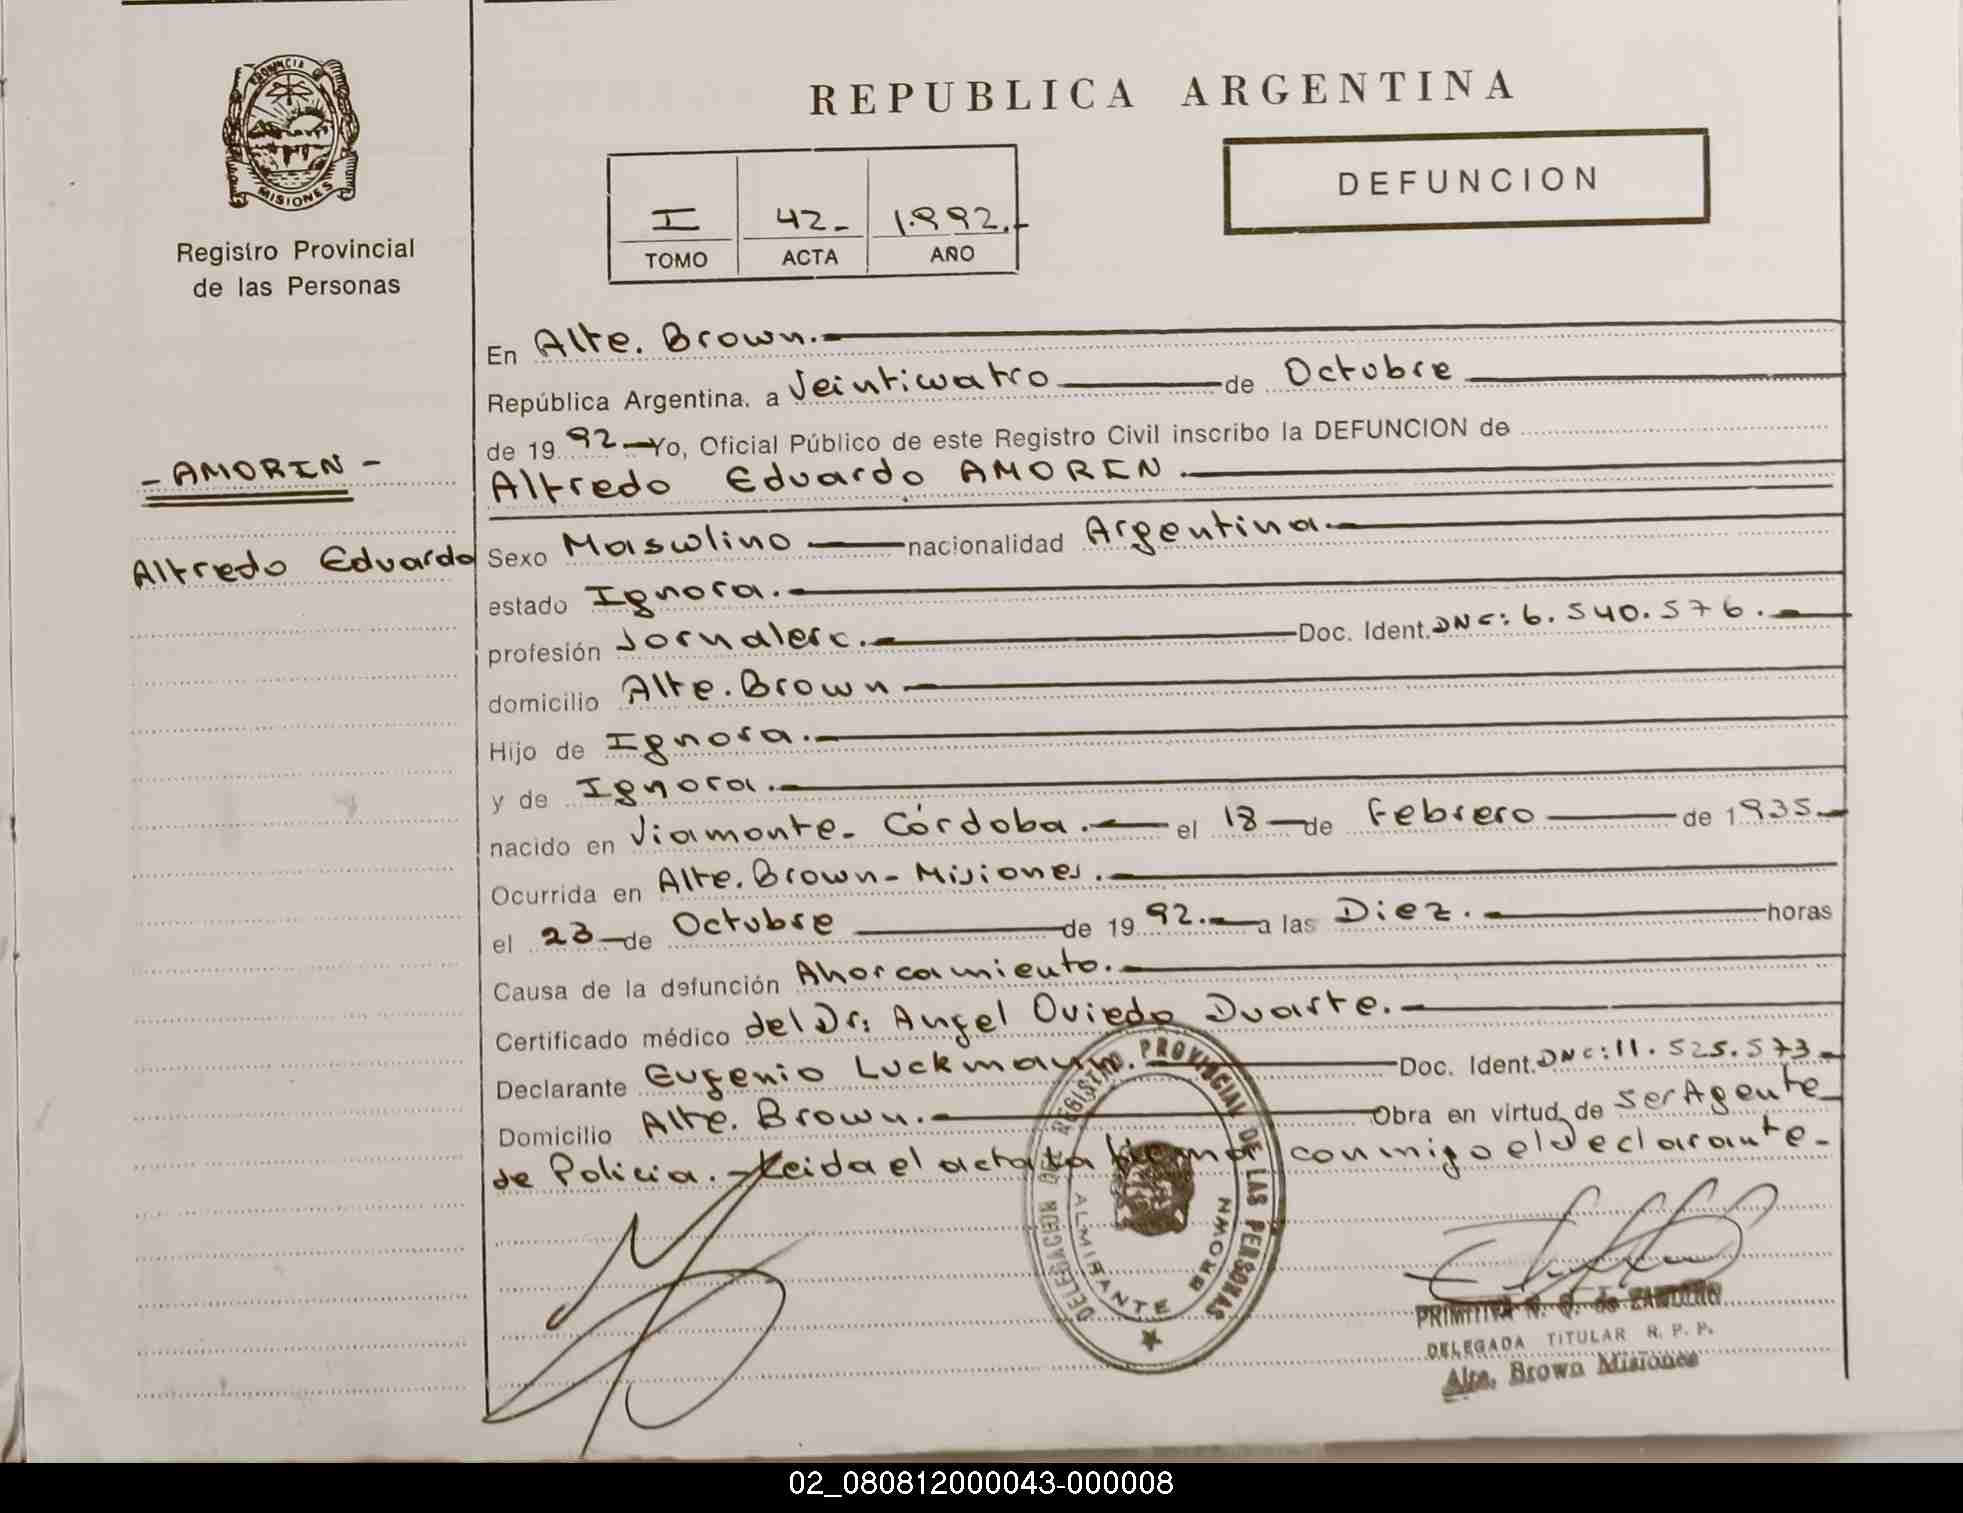 PROVINCIA DE
MISIONES
Registro Provincial
de las Personas
- AMOREN -
Alfredo Eduardo
REPUBLICA ARGENTINA
DEFUNCION
I 42- 1.992.-
TOMO ACTA AÑO
En Alte. Brown.-
República Argentina, a Veinticuatro de Octubre
de 19 92 - Yo, Oficial Público de este Registro Civil inscribo la DEFUNCION de
Alfredo Eduardo AMOREN.-
Sexo Masculino nacionalidad Argentina.-
estado Ignora.-
profesión Jornalero.- Doc. Ident. DNI: 6.540.576.-
domicilio Alte. Brown-
Hijo de Ignora.-
y de Ignora.-
nacido en Viamonte- Córdoba.- el 18 - de Febrero de 1935.-
Ocurrida en Alte. Brown- Misiones.-
el 23 - de Octubre de 19 92.- a las Diez.- horas
Causa de la defunción Ahorcamiento.-
Certificado médico del Dr: Angel Oviedo Duarte.-
Declarante Eugenio Luckmann.- Doc. Ident. DNI: 11.525.573-
Domicilio Alte. Brown.- Obra en virtud de ser Agente
de Policia.- Leida el acta la firma conmigo el declarante-
DELEGACION DEL REGISTRO PROVINCIAL DE LAS PERSONAS
ALMIRANTE BROWN
PRIMITIVA N. de
DELEGADA TITULAR R. P. P.
Alte. Brown Misiones
02_080812000043-000008